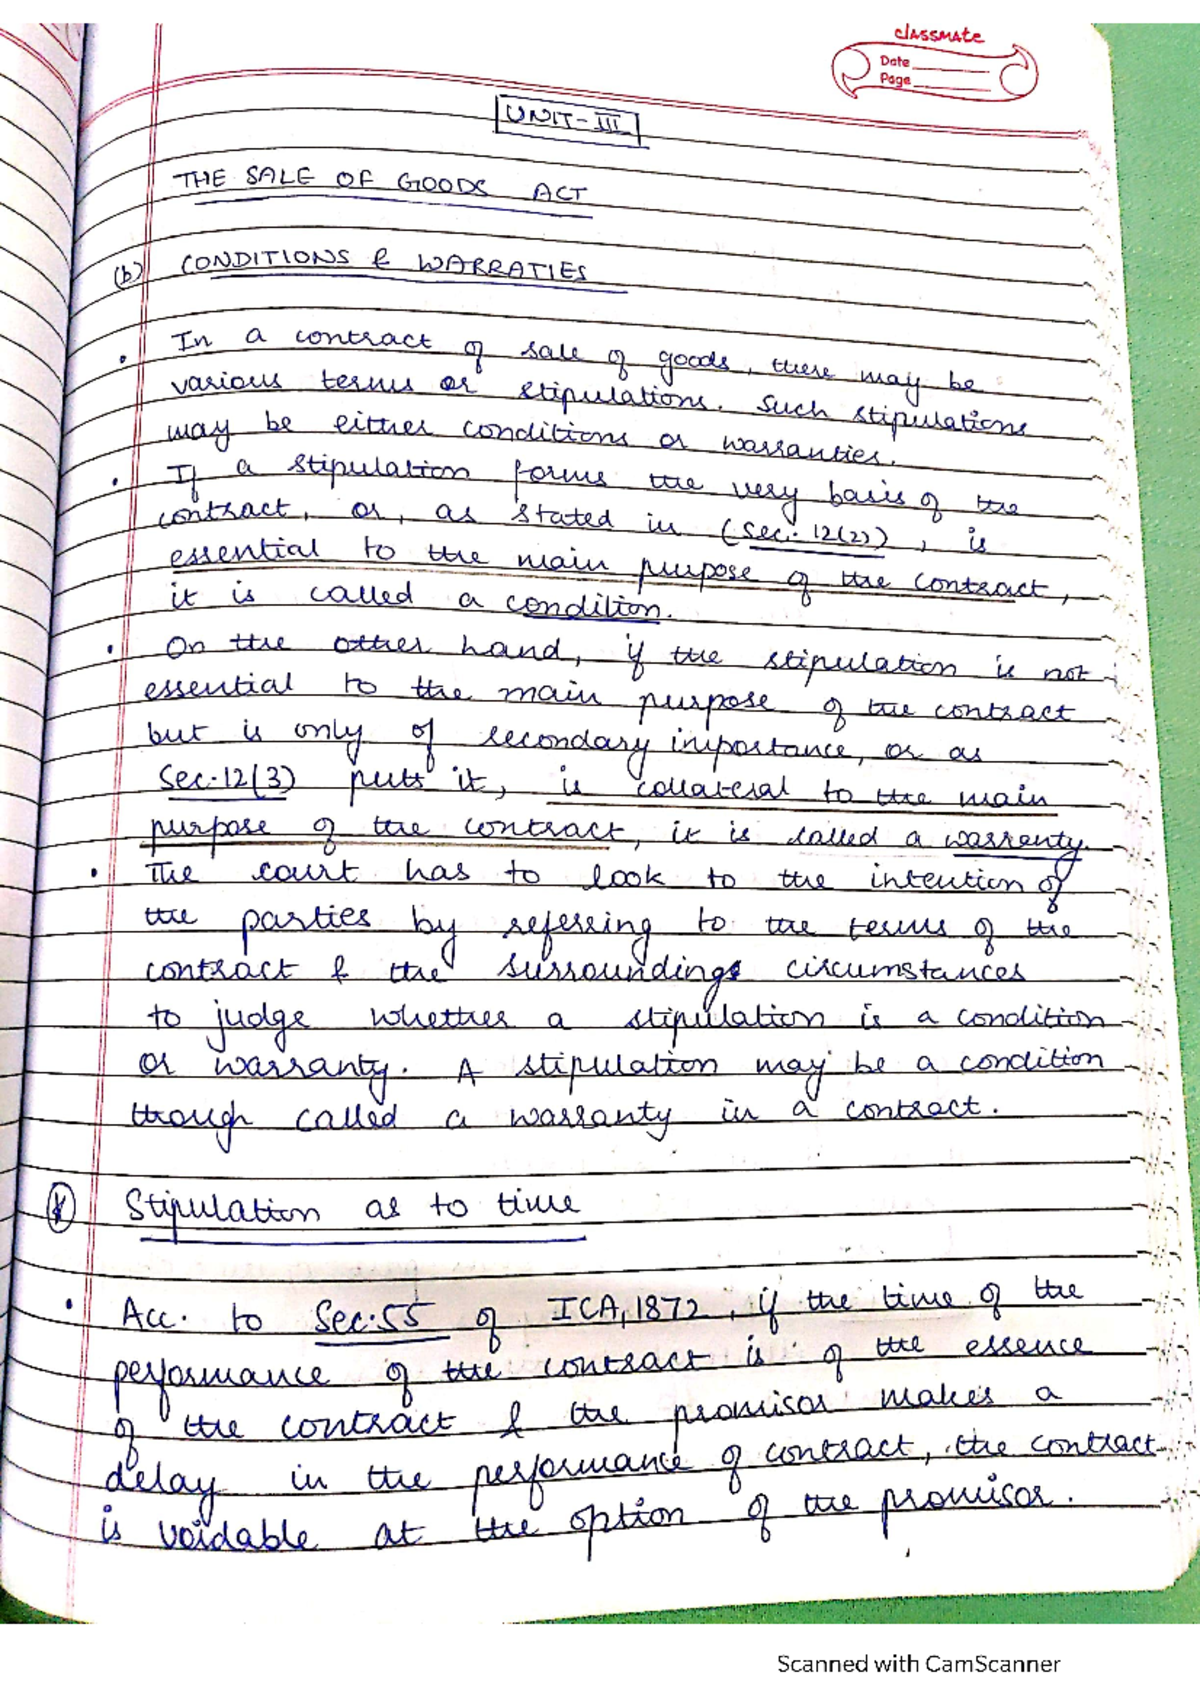 classmate
Date
Page
UNIT-III
THE SALE OF GOODS ACT
(b) CONDITIONS & WARRATIES
• In a contract of sale of goods, there may be
various terms or stipulations. Such stipulations
may be either conditions or warranties.
• If a stipulation forms the very basis of the
contract, or, as stated in (Sec. 12(2)), is
essential to the main purpose of the contract,
it is called a condition.
• On the other hand, if the stipulation is not
essential to the main purpose of the contract
but is only of secondary importance, or as
Sec.12(3) puts it, is collateral to the main
purpose of the contract, it is called a warrenty.
• The court has to look to the intention of
the parties by referring to the terms of the
contract & the surroundings circumstances
to judge whether a stipulation is a condition
or warranty. A stipulation may be a condition
though called a warranty in a contract.
Stipulation as to time
• Acc. to Sec.55 of ICA, 1872, if the time of the
performance of the contract is of the essence
of the contract & the promisor makes a
delay in the performance of contract, the contract
is voidable at the option of the promisor.
Scanned with CamScanner